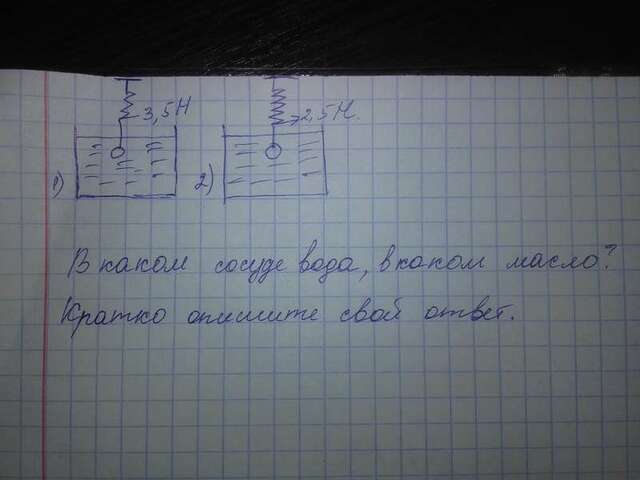 1) 3,5Н
2) 2,5Н.
В каком сосуде вода, в каком масло?
Кратко опишите свой ответ.